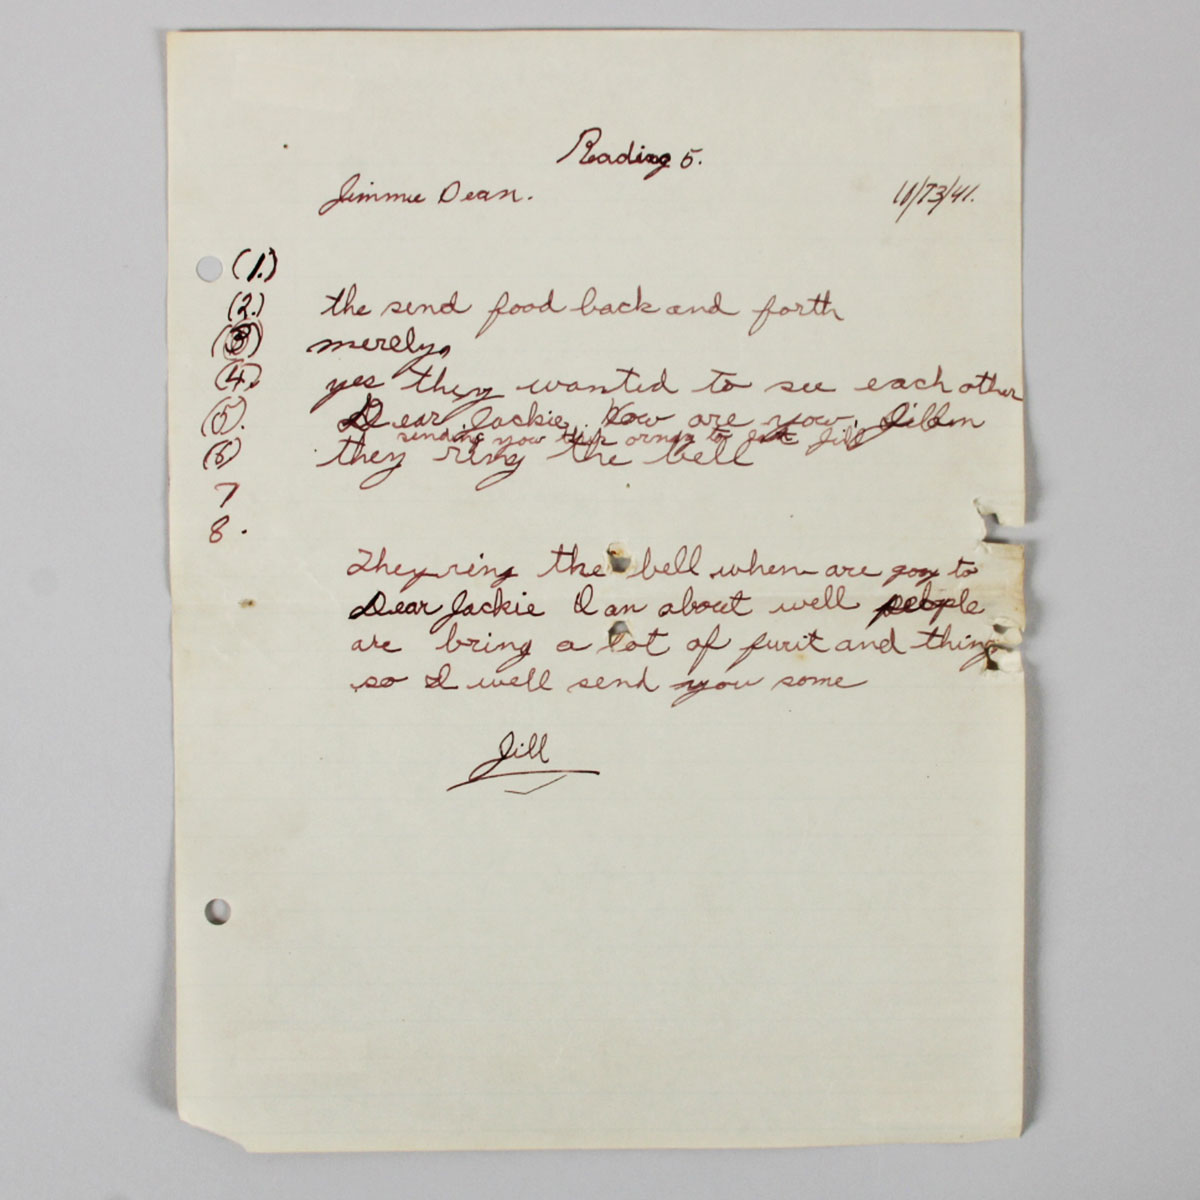 Reading 5.
Jimmie Dean. 10/73/41.
(1.)
(2.) the send food back and forth
(3) merely,
(4.) yes they wanted to see each other
(5). Dear Jackie. How are you.
sending you to Jill
(6) they ring the bell
7
8.
They ring the bell when are to
Dear Jackie I an about well people
are bring a lot of furit and thing
so I well send you some
Jill